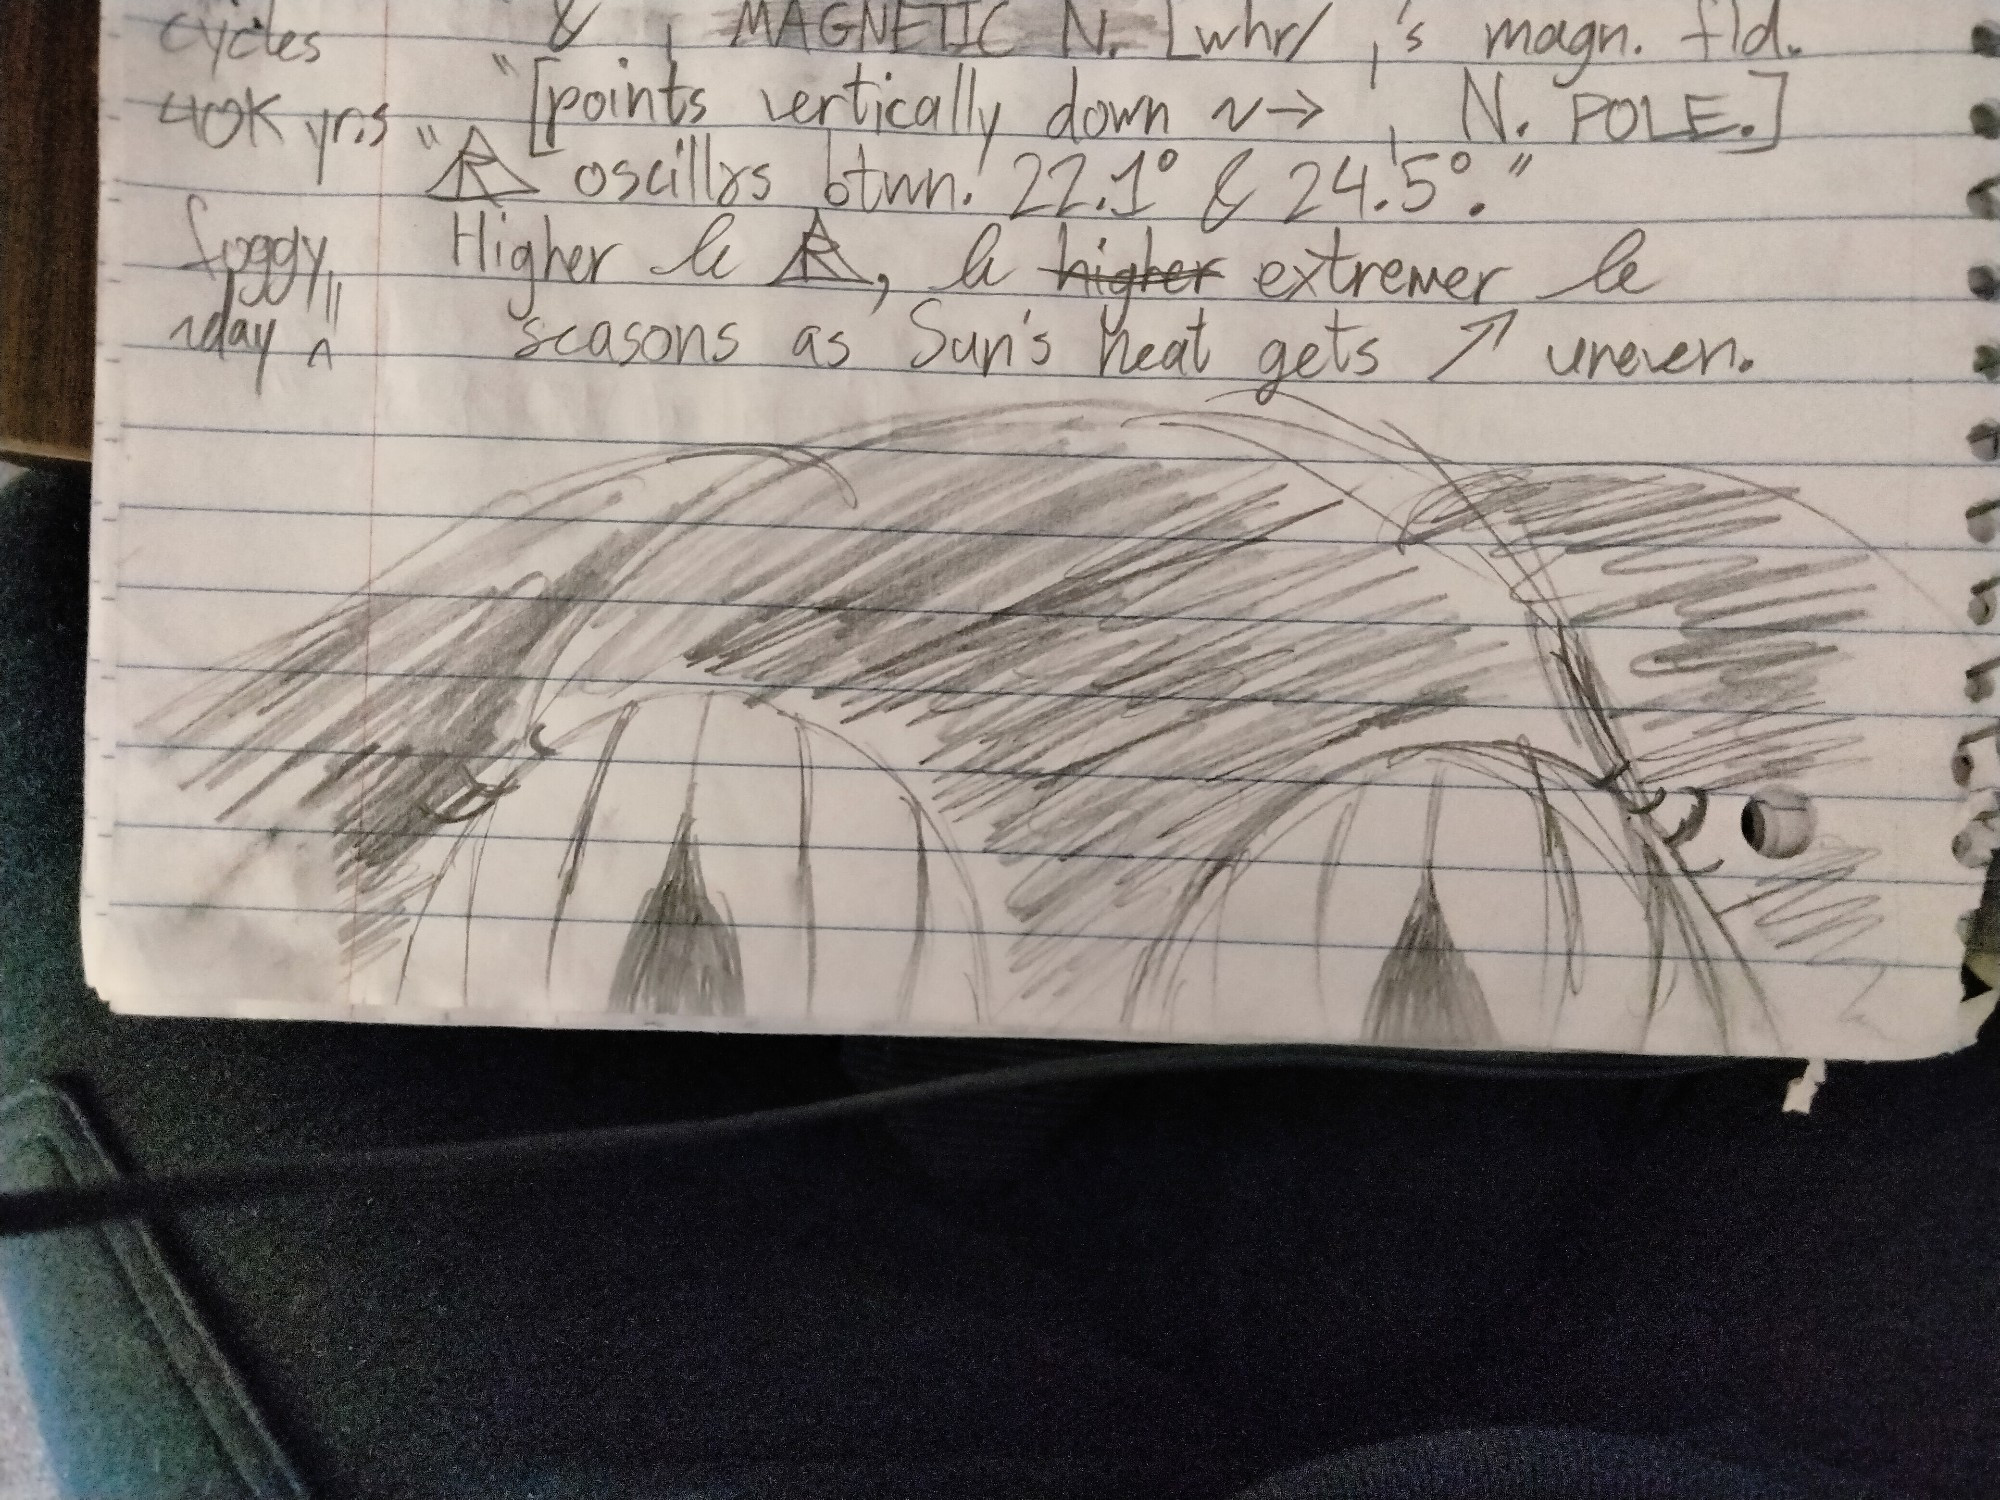 cycles & MAGNETIC N. [whr/ ,'s magn. fld.
40K yrs "[points vertically down ~→ , N. POLE.]
" oscillrs btwn. 22.1° & 24.5°."
foggy, Higher le , le higher extremer le
day ^ seasons as Sun's heat gets ↗ uneven.